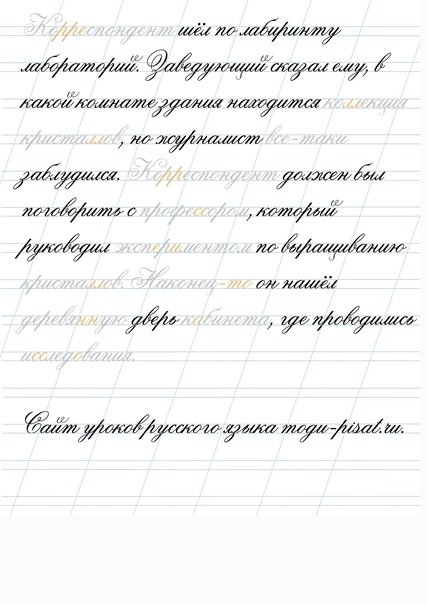 Корреспондент шёл по лабиринту
лабораторий. Заведующий сказал ему, в
какой комнате здания находится коллекция
кристаллов, но журналист все-таки
заблудился. Корреспондент должен был
поговорить с профессором, который
руководил экспериментом по выращиванию
кристаллов. Наконец-то он нашёл
деревянную дверь кабинета, где проводились
исследования.
Сайт уроков русского языка mogu-pisat.ru.